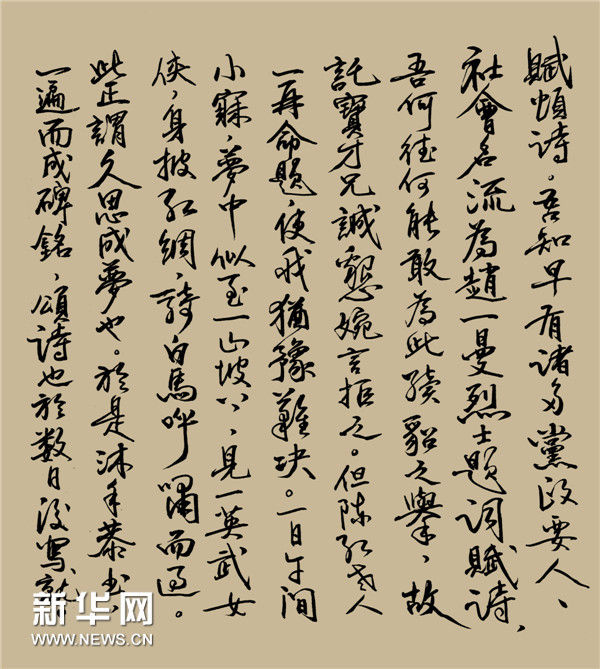 賦頌詩。吾知早有諸多黨政要人、
社會名流為趙一曼烈士題詞賦詩,
吾何德何能敢為此續貂之舉、故
託寶才兄誠懇婉言拒之。但陳紅人
一再命題,使我猶豫難决。一日午間
小寐,夢中似至一山坡、見一英武女
俠,身披紅綢,騎白馬呼嘯而過。
此正謂久思成夢也。於是沐手恭書、
一遍而成碑銘,頌詩也於数日後寫就。
新华网
WWW.NEWS.CN